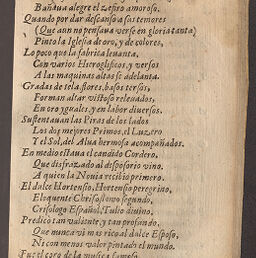 Bañaua alegre el zefiro amoroso.
Quando por dar descanso a sus temores
(Que aun no pensaua verse en gloria tanta)
Pinto la Iglesia de oro, y de colores,
Lo poco que la fabrica leuanta,
Con varios Hieroglificos, y versos
A las maquinas altas se adelanta.
Gradas de tela, flores, basos tersos,
Forman altar vistoso releuados,
En oro yguales, y en labor diuersos.
Sustentauan las Piras de los lados
Los dos mejores Primos, el Luzero
Y el Sol, del Alua hermosa acompañados.
En medio estaua el candido Cordero,
Que disfrazado al desposorio vino,
A quien la Nouia recibio primero.
El dulce Hortensio, Hortensio peregrino,
Eloquente Chrisostomo segundo,
Crisologo Español, Tulio diuino,
Predicò tan valiente, y tan profundo,
Que nunca vi mas rico al dulce Esposo,
Ni con menos valor pintado el mundo.
Fue el coro de la musica famoso